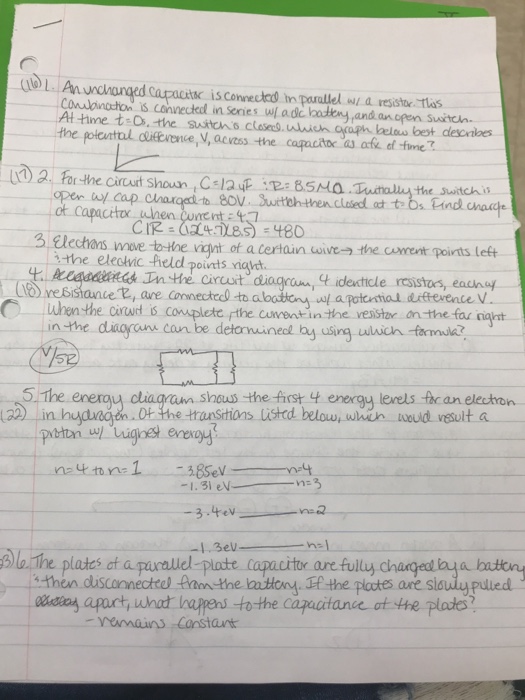 (16) 1. An unchanged capacitor is connected in parallel w/ a resistor. This
combination is connected in series w/ a dc battery, and an open switch.
At time t=0s, the switch is closed. Which graph below best describes
the potential difference, V, across the capacitor as a fx of time?
(17) 2. For the circuit shown, C=12µF ; R= 8.5MΩ. Initially the switch is
open w/ cap charged to 80V. Switch then closed at t=0s Find charge
of capacitor when current = 4.7
CIR = (12)(4.7)(8.5) = 480
3. Electrons move to the right of a certain wire → the current points left
; the electric field points right.
4. In the circuit diagram, 4 identicle resistors, each w/
(18) resistance R, are connected to a battery w/ a potential difference V.
When the circuit is complete, the current in the resistor on the far right
in the diagram can be determined by using which formula?
V/5R
5. The energy diagram shows the first 4 energy levels for an electron
(22) in hydrogen. Of the transitions listed below, which would result a
proton w/ highest energy?
n=4 to n=1 -3.85eV n=4
-1.51 eV n=3
-3.4eV n=2
-1.3eV n=1
3) 6. The plates of a parallel-plate capacitor are fully charged by a battery
; then disconnected from the battery. If the plates are slowly pulled
apart, what happens to the capacitance of the plates?
- remains constant